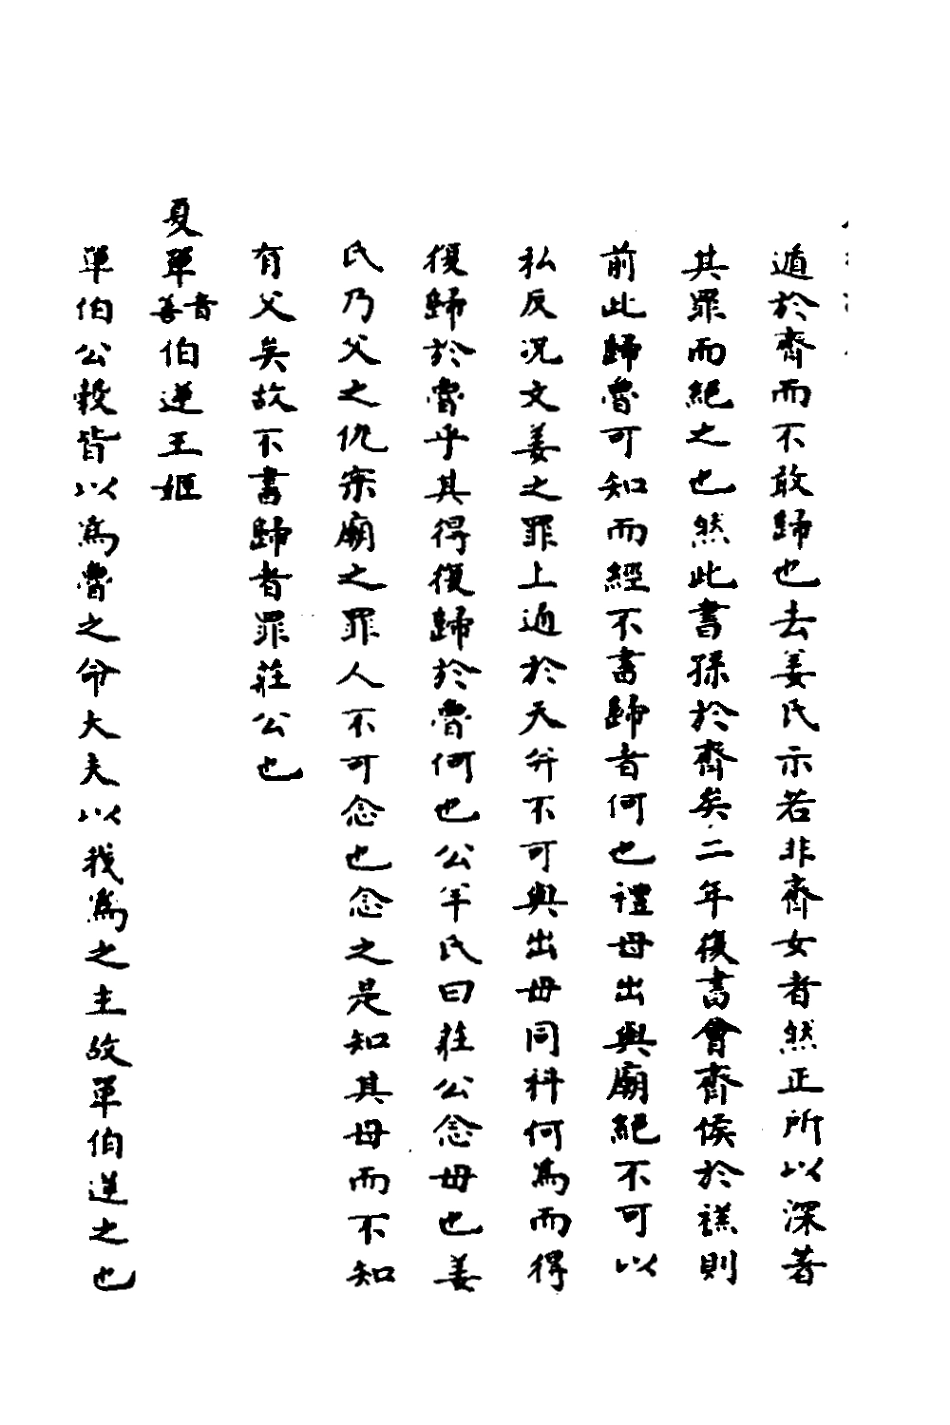 遁於齊而不敢歸也去姜氏示若非齊女者然正所以深著
其罪而絕之也然此書孫於齊矣二年復書會齊侯於禚則
前此歸魯可知而經不書歸者何也禮母出與廟絕不可以
私反况文姜之罪上通於天并不可與出母同科何爲而得
復歸於魯乎其得復歸於魯何也公羊氏曰莊公念母也姜
氏乃父之仇宗廟之罪人不可念也念之是知其母而不知
有父矣故不書歸者罪莊公也
夏單音善伯逆王姬
單伯公穀皆以爲魯之命大夫以我爲之主故單伯逆之也